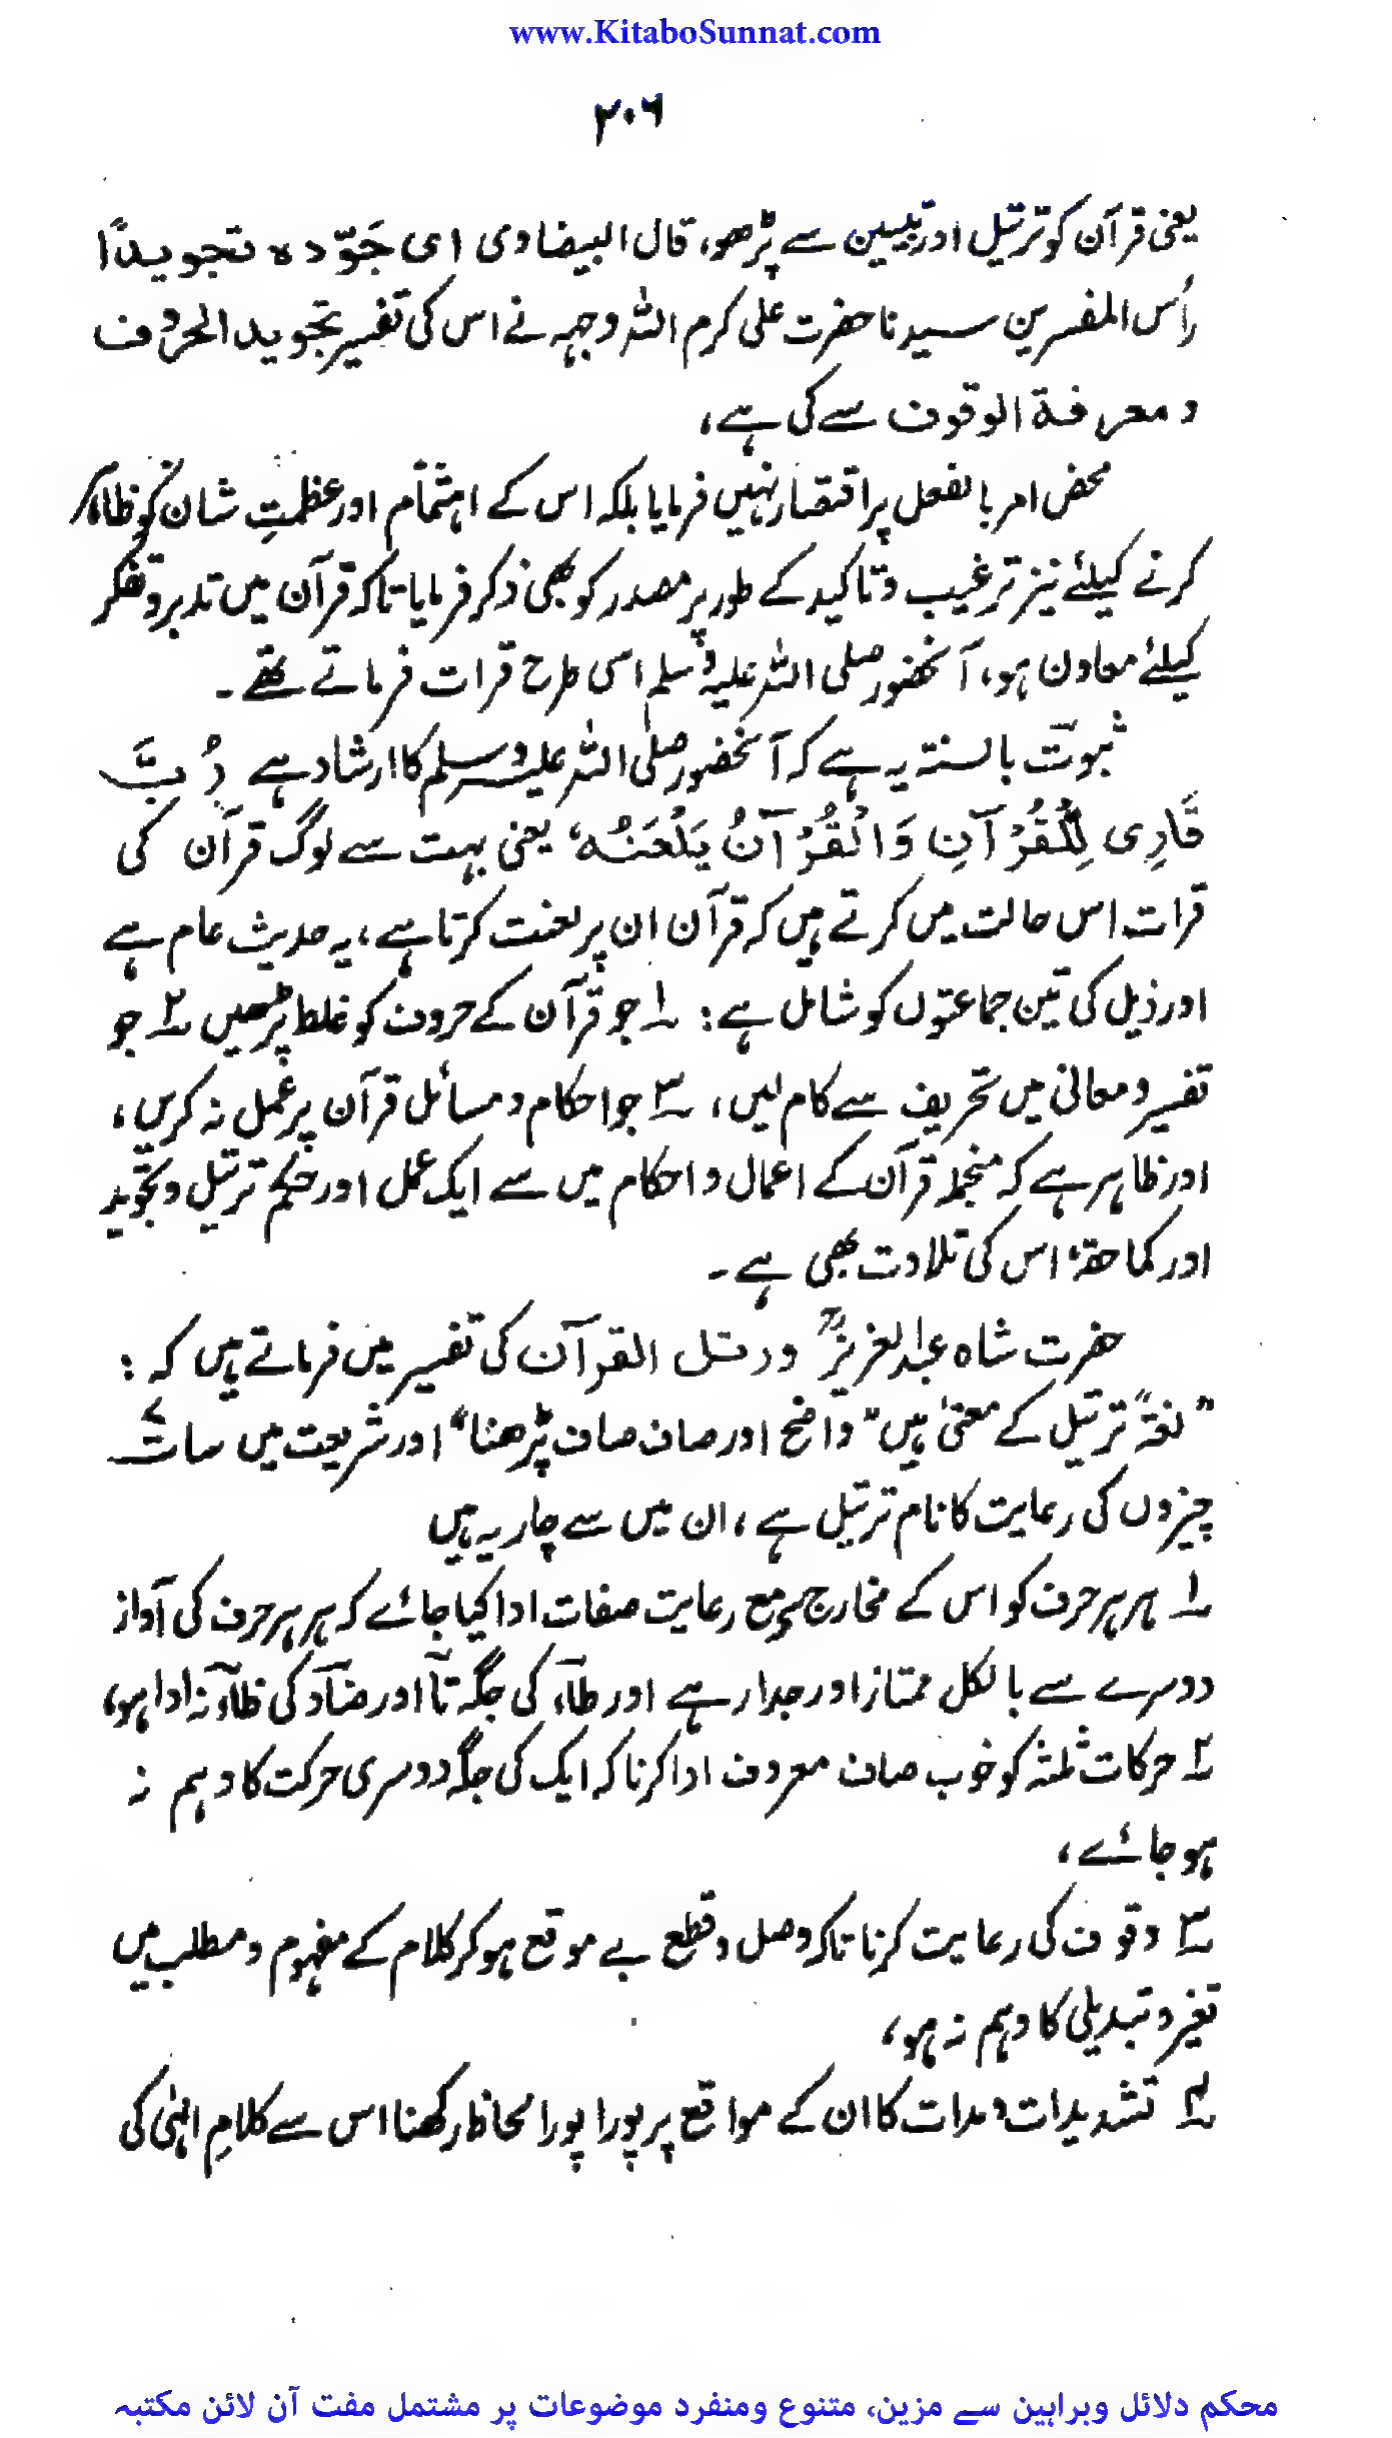 www.KitaboSunnat.com
۲۰۶
یعنی قرآن کو ترتیل اور تبیین سے پڑھو، قال البیضاوی ای جَوِّدہ تجویدًا
رأس المفسرین سیدنا حضرت علی کرم اللہ وجہہ نے اس کی تفسیر تجوید الحروف
و معرفۃ الوقوف سے کی ہے،
محض امر بالفعل پر اقتصار نہیں فرمایا بلکہ اس کے اہتمام اور عظمتِ شان کو ظاہر
کرنے کیلئے نیز ترغیب و تاکید کے طور پر مصدر کو بھی ذکر فرمایا تاکہ قرآن میں تدبر و تفکر
کیلئے معاون ہو، آنحضور صلی اللہ علیہ وسلم اسی طرح قرات فرماتے تھے۔
ثبوت بالسنۃ یہ ہے کہ آنحضور صلی اللہ علیہ وسلم کا ارشاد ہے رُبَّ
قَارِی لِلْقُرْآنِ وَالْقُرْآنُ یَلْعَنُہ، یعنی بہت سے لوگ قرآن کی
قرات اس حالت میں کرتے ہیں کہ قرآن ان پر لعنت کرتا ہے، یہ حدیث عام ہے
اور ذیل کی تین جماعتوں کو شامل ہے: ۱؎ جو قرآن کے حروف کو غلط پڑھیں ۲؎ جو
تفسیر و معانی میں تحریف سے کام لیں، ۳؎ جو احکام و مسائل قرآن پر عمل نہ کریں،
اور ظاہر ہے کہ منجملہ قرآن کے اعمال و احکام میں سے ایک عمل اور حکم ترتیل و تجوید
اور کماحقہٗ اس کی تلاوت بھی ہے۔
حضرت شاہ عبدالعزیزؒ ورتل القرآن کی تفسیر میں فرماتے ہیں کہ:
"لغۃً ترتیل کے معنیٰ ہیں "واضح اور صاف صاف پڑھنا" اور شریعت میں سات
چیزوں کی رعایت کا نام ترتیل ہے، ان میں سے چار یہ ہیں
۱؎ ہر ہر حرف کو اس کے مخارج سے مع رعایت صفات ادا کیا جائے کہ ہر ہر حرف کی آواز
دوسرے سے بالکل ممتاز اور جدا رہے اور طآء کی جگہ تآ اور ضآد کی ظآء نہ ادا ہو،
۲؎ حرکات ثلٰثہ کو خوب صاف معروف ادا کرنا کہ ایک کی جگہ دوسری حرکت کا وہم نہ
ہو جائے،
۳؎ وقوف کی رعایت کرنا تاکہ وصل و قطع بے موقع ہو کر کلام کے مفہوم و مطلب میں
تغیر و تبدیلی کا وہم نہ ہو،
۴؎ تشدیدات و مدات کا ان کے مواقع پر پورا پورا لحاظ رکھنا اس سے کلامِ الٰہی کی
محکم دلائل وبراہین سے مزین، متنوع ومنفرد موضوعات پر مشتمل مفت آن لائن مکتبہ